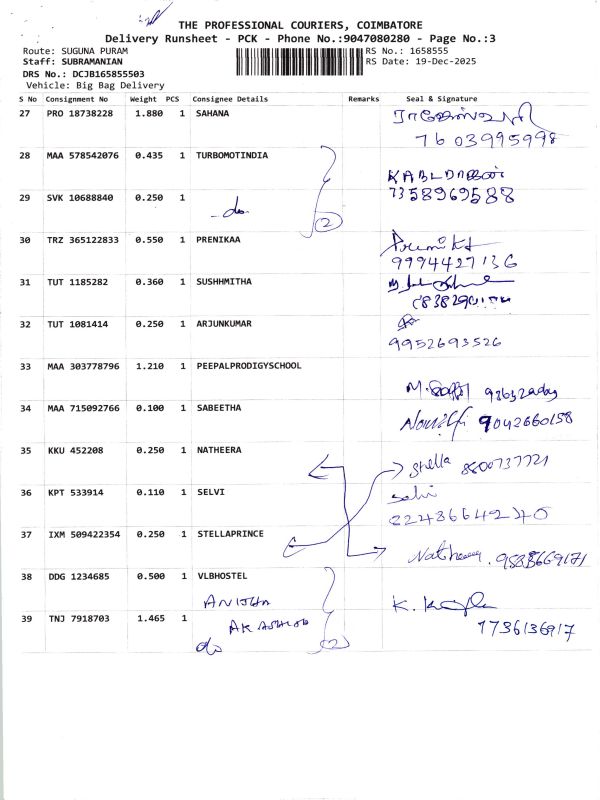 THE PROFESSIONAL COURIERS, COIMBATORE
Delivery Runsheet - PCK - Phone No.:9047080280 - Page No.:3
Route: SUGUNA PURAM RS No.: 1658555
Staff: SUBRAMANIAN RS Date: 19-Dec-2025
DRS No.: DCJB165855503
Vehicle: Big Bag Delivery
S No Consignment No Weight PCS Consignee Details Remarks Seal & Signature
27 PRO 18738228 1.880 1 SAHANA
7603995998
28 MAA 578542076 0.435 1 TURBOMOTINDIA
29 SVK 10688840 0.250 1 7358969588
do (2)
30 TRZ 365122833 0.550 1 PRENIKAA
9994427136
31 TUT 1185282 0.360 1 SUSHHMITHA
32 TUT 1081414 0.250 1 ARJUNKUMAR
9952693526
33 MAA 303778796 1.210 1 PEEPALPRODIGYSCHOOL
34 MAA 715092766 0.100 1 SABEETHA 9042660158
35 KKU 452208 0.250 1 NATHEERA
Stella
36 KPT 533914 0.110 1 SELVI
37 IXM 509422354 0.250 1 STELLAPRINCE
38 DDG 1234685 0.500 1 VLBHOSTEL
39 TNJ 7918703 1.465 1
do (2)